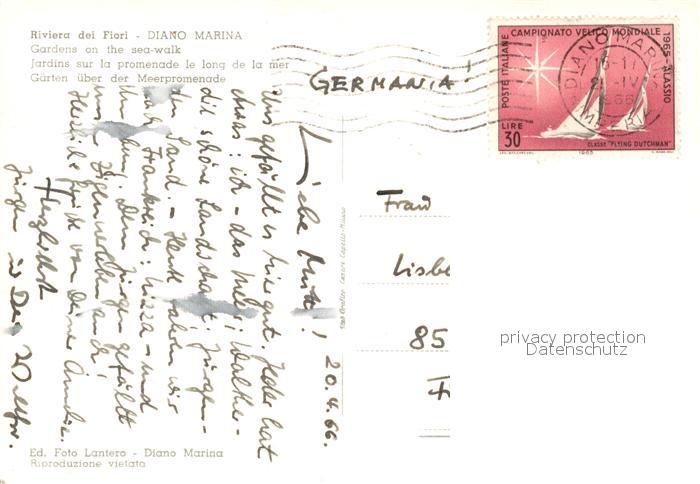 Riviera dei Fiori - DIANO MARINA
Gardens on the sea-walk
Jardins sur la promenade le long de la mer
Gärten über der Meerpromenade
GERMANIA!
POSTE ITALIANE
CAMPIONATO VELICO MONDIALE
1965-ALASSIO
LIRE
30
CLASSE "FLYING DUTCHMAN"
1965
DIANO MARINA
Frau
Lisbe
85
privacy protection
Datenschutz
20.4.66.
Liebe Mutti!
Uns gefällt es hier gut. Jeder hat
etwas: ich - das Meer; Walther -
die schöne Landschaft; Jürgen -
den Sand. - Heute fahren wir
nach Frankreich: Nizza - und
Dem Jürgen gefällt
uns
Herzliche Grüße von Deiner
Herzlichst
Jürgen u Dein
Ed. Foto Lantero - Diano Marina
Riproduzione vietata